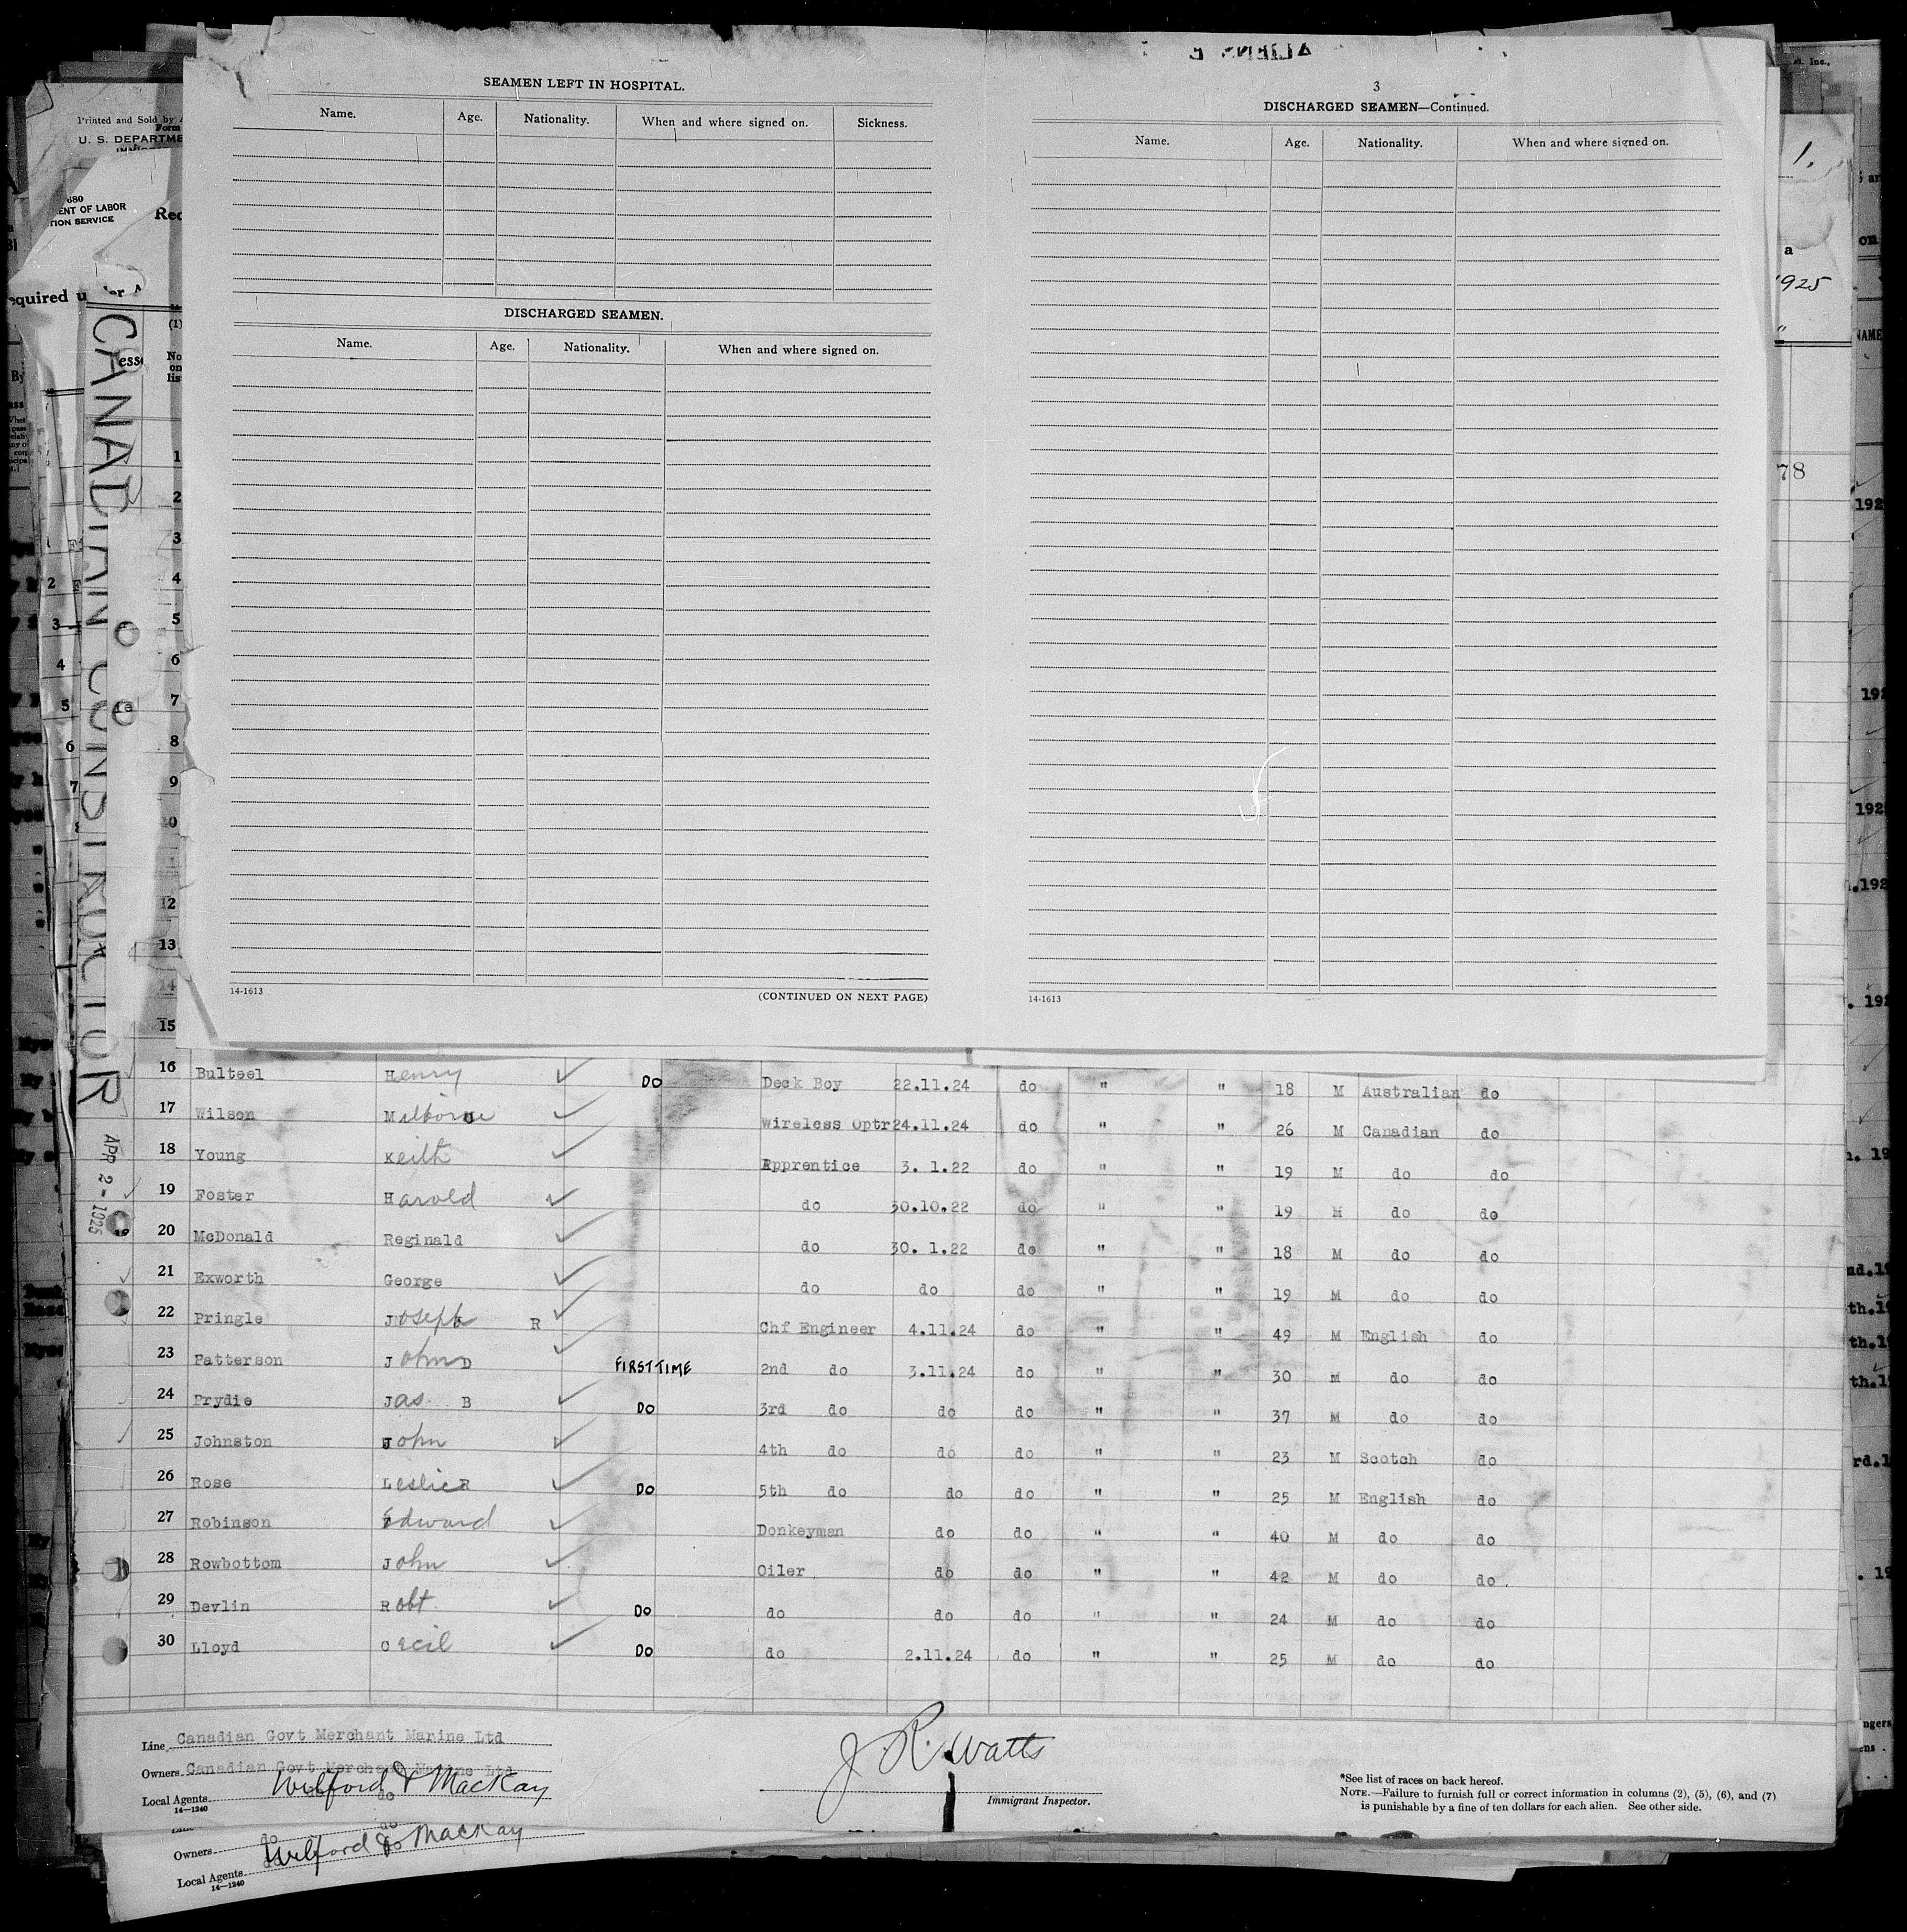 SEAMEN LEFT IN HOSPITAL.
Name. Age. Nationality. When and where signed on. Sickness.
DISCHARGED SEAMEN.
Name. Age. Nationality. When and where signed on.
14-1613 (CONTINUED ON NEXT PAGE)
3
DISCHARGED SEAMEN—Continued.
Name. Age. Nationality. When and where signed on.
14-1613
Printed and Sold by
Form
U. S. DEPARTME
680
ENT OF LABOR
TION SERVICE
Rec
equired u
CANADIAN CONSTRUCTOR
APR 2-1925
(1)
No
on
lis
1
2
3
4
5
6
7
8
9
10
12
13
14
15
1.
a
1925
78
16 Bulteel Henry Do Deck Boy 22.11.24 do " " 18 M Australian do
17 Wilson Melborne Wireless Optr 24.11.24 do " " 26 M Canadian do
18 Young Keith Apprentice 3. 1.22 do " " 19 M do do
19 Foster Harold do 30.10.22 do " " 19 M do do
20 McDonald Reginald do 30. 1.22 do " " 18 M do do
21 Exworth George do do do " " 19 M do do
22 Pringle Joseph R Chf Engineer 4.11.24 do " " 49 M English do
23 Patterson John D FIRST TIME 2nd do 3.11.24 do " " 30 M do do
24 Prydie Jas. B Do 3rd do do do " " 37 M do do
25 Johnston John 4th do do do " " 23 M Scotch do
26 Rose Leslie R Do 5th do do do " " 25 M English do
27 Robinson Edward Donkeyman do do " " 40 M do do
28 Rowbottom John Oiler do do " " 42 M do do
29 Devlin Robt Do do do do " " 24 M do do
30 Lloyd Cecil Do do 2.11.24 do " " 25 M do do
Line Canadian Govt Merchant Marine Ltd
Owners Canadian Govt Merchant Marine Ltd
Local Agents Wilford & MacKay
do
14—1240
J R. Watts
Immigrant Inspector.
*See list of races on back hereof.
NOTE.—Failure to furnish full or correct information in columns (2), (5), (6), and (7)
is punishable by a fine of ten dollars for each alien. See other side.
do do
Owners
Local Agents Wilford & MacKay
14—1240